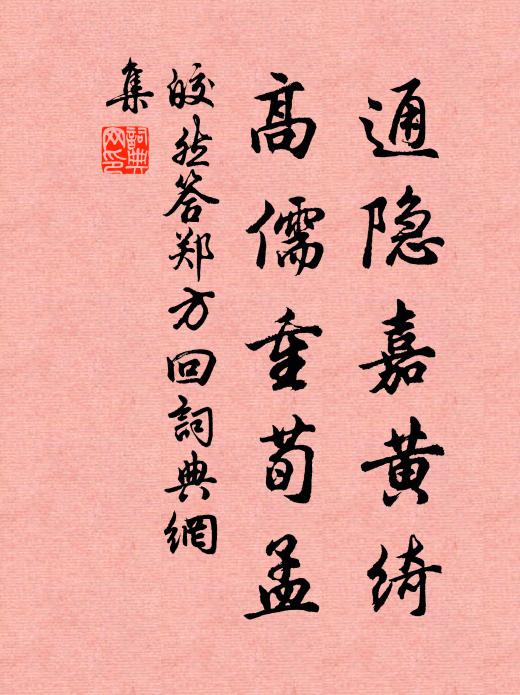 通隐嘉黄绮
高儒重荀孟
皎然答郑方回詞典網
集
詞典网印